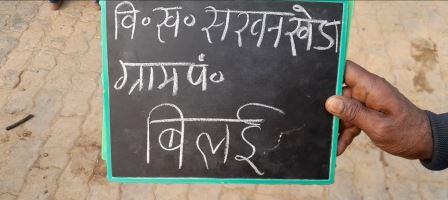 वि॰ख॰ सरवनखेडा
ग्राम पं॰
बिलई